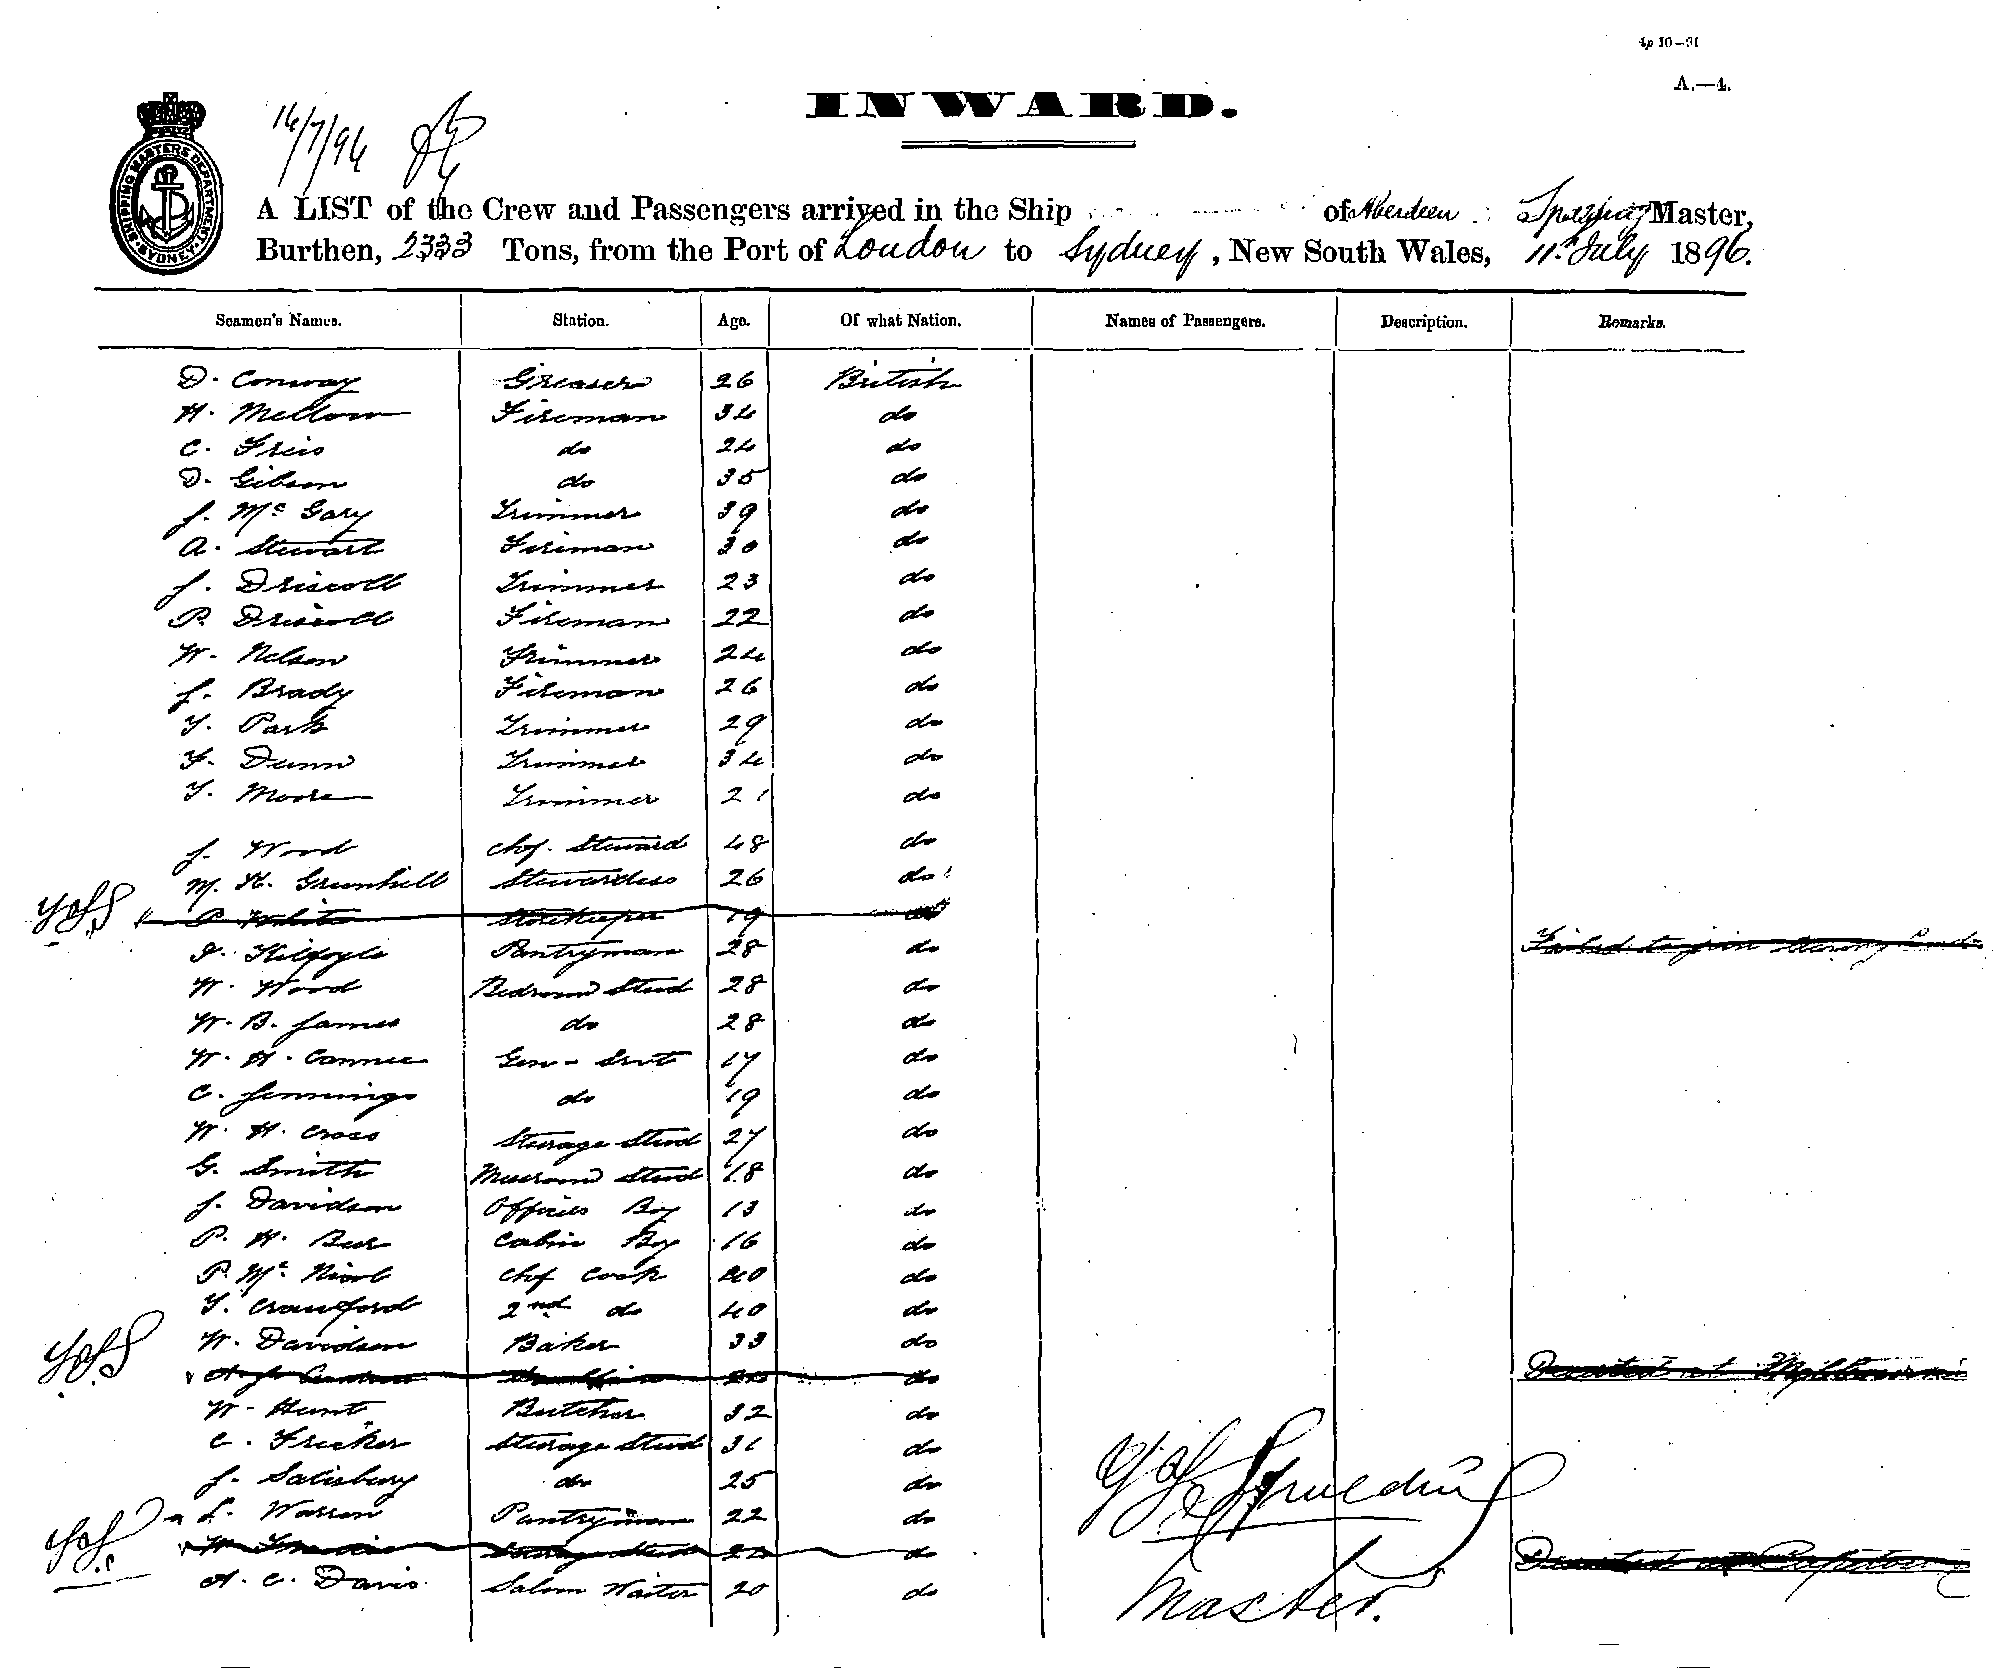 4p 10—91
A.—4.
INWARD.
16/7/96
SHIPPING MASTERS DEPARTMENT SYDNEY
A LIST of the Crew and Passengers arrived in the Ship of Aberdeen Master,
Burthen, 2333 Tons, from the Port of London to Sydney, New South Wales, 11th July 1896.
Seamen's Names. Station. Age. Of what Nation. Names of Passengers. Description. Remarks.
D. Conway Greaser 26 British
H. Mellow Fireman 34 do
C. Freis do 24 do
D. Gibson do 35 do
J. McGary Trimmer 39 do
A. Stewart Fireman 30 do
J. Driscoll Trimmer 23 do
P. Driscoll Fireman 22 do
W. Nelson Trimmer 24 do
J. Brady Fireman 26 do
T. Park Trimmer 29 do
F. Dunn Trimmer 34 do
T. Moore Trimmer 21 do
J. Wood Chf. Steward 48 do
M. H. Greenhill Stewardess 26 do
P. White Storekeeper 19 do
J. Kilfoyle Pantryman 28 do Failed to join
W. Wood Bedroom Stwd 28 do
W. B. James do 28 do
W. H. Cannee Gen- Srvt 17 do
C. Jennings do 19 do
W. H. Cross Steerage Stwd 27 do
G. Smith Messroom Stwd 18 do
J. Davidson Officers Boy 13 do
P. H. Beer Cabin Boy 16 do
P. McNicol Chf Cook 40 do
T. Crawford 2nd do 40 do
W. Davidson Baker 33 do
do Deserted at Melbourne
W. Hunt Butcher 32 do
C. Fricker Steerage Stwd 31 do
J. Salisbury do 25 do
L. Warren Pantryman 22 do
Steerage Stwd do Deserted at Capetown
A. C. Davis Saloon Waiter 20 do
Master.